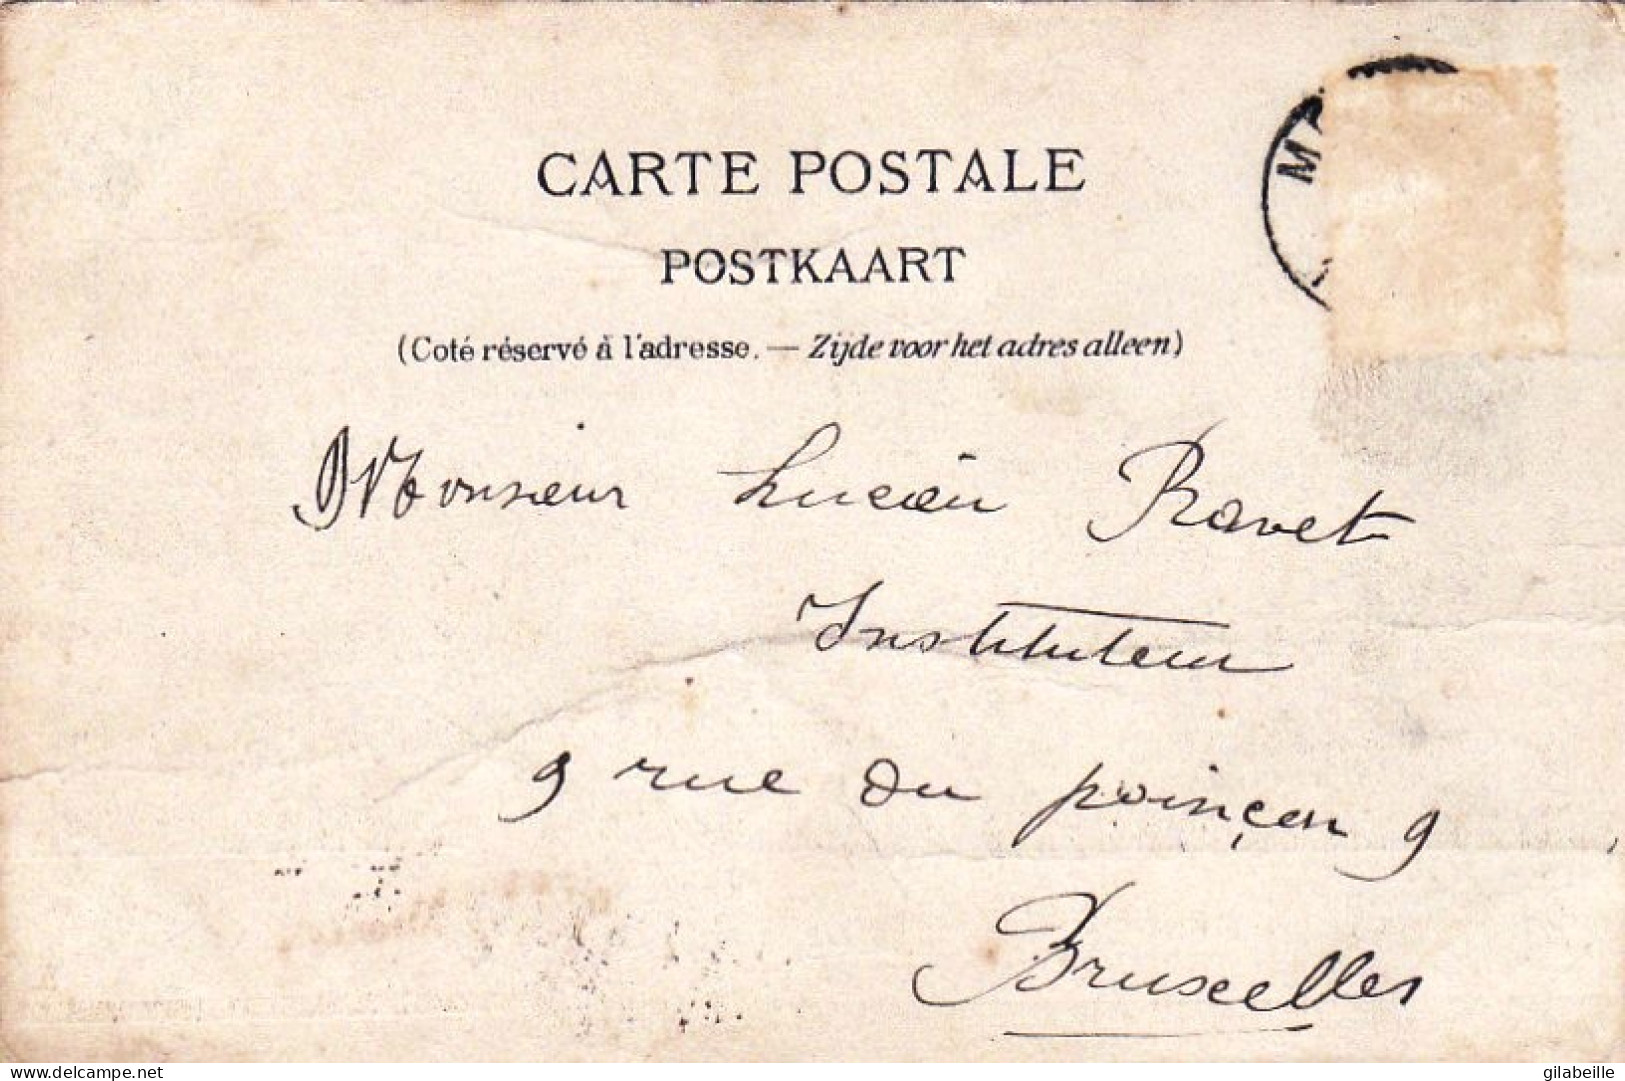 CARTE POSTALE
POSTKAART
(Coté réservé à l'adresse. — Zijde voor het adres alleen)
Monsieur Lucien Ravet
Instituteur
9 rue du poinçon 9
Bruxelles
delcampe.net
gilabeille